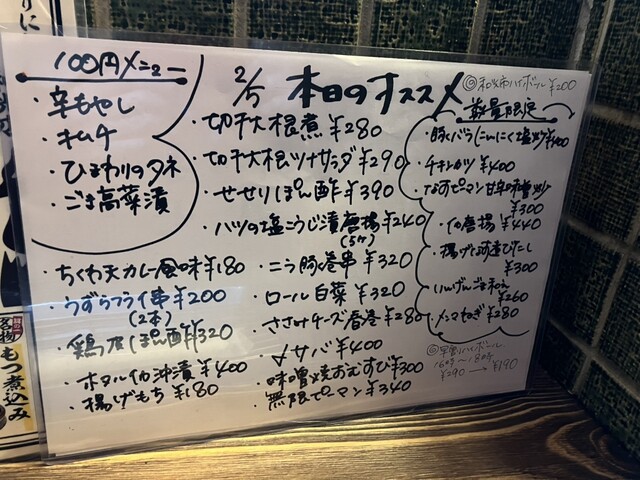 100円メニュー
・辛もやし
・キムチ
・ひまわりのタネ
・ごま高菜漬
2/5 本日のオススメ
・切干大根煮 ¥280
・切干大根ツナサラダ ¥290
・せせりぽん酢 ¥390
・ハツの塩こうじ漬唐揚 ¥240
(5ケ)
・ちくわ天カレー風味 ¥180
・うずらフライ串 ¥200
(2本)
・鶏皮ぽん酢 ¥320
・ホタルイカ沖漬 ¥400
・揚げもち ¥180
・ニラ豚巻串 ¥320
・ロール白菜 ¥320
・ささみチーズ春巻 ¥280
・〆サバ ¥400
・味噌焼おむすび ¥300
・無限ピーマン ¥340
ハイボール ¥200
数量限定
・豚バラにんにく塩炒 ¥400
・チキンカツ ¥400
・なすピーマン甘辛味噌炒
¥300
・イカ唐揚 ¥440
・揚げなす煮びたし
¥300
・いんげんごま和え
¥260
・メンマねぎ ¥280
◎早割ハイボール
16時〜18時
¥290→¥190
名物
もつ煮込み